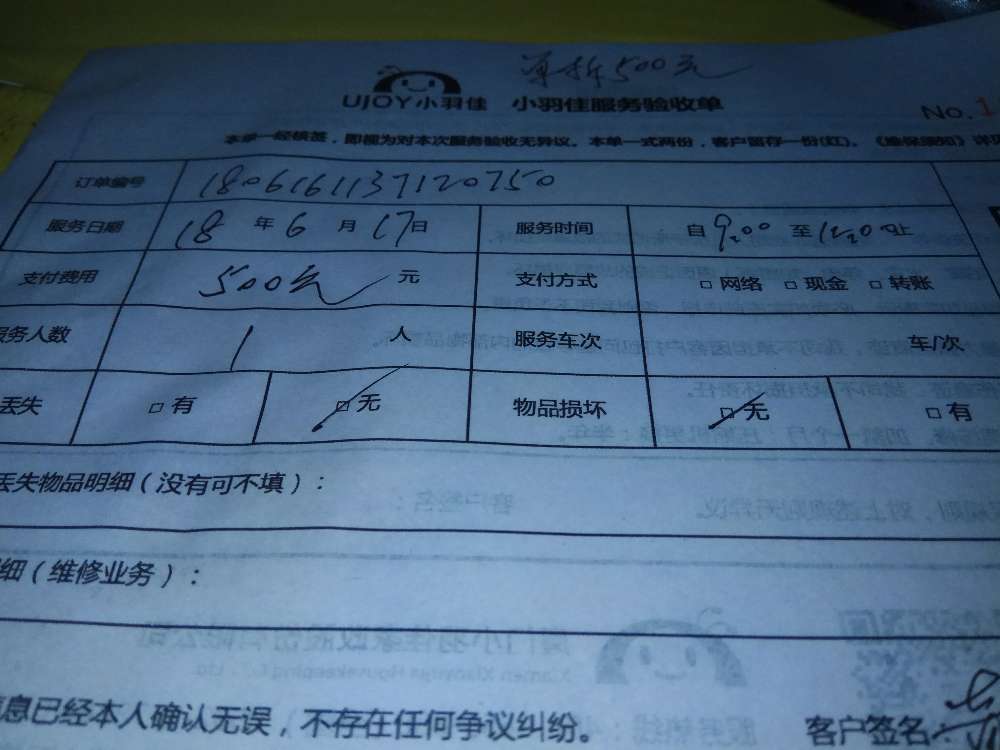 单拆500元
UJOY小羽佳 小羽佳服务验收单
No.1
本单一经核签，即视为对本次服务验收无异议。本单一式两份，客户留存一份(红)。《维保须知》详
订单编号 1806161137120750
服务日期 18 年 6 月 17 日 服务时间 自 9:00 至 12:00 止
支付费用 500元 元 支付方式 □ 网络 □ 现金 □ 转账
服务人数 1 人 服务车次 车/次
丢失 □ 有 □ 无 物品损坏 □ 无 □ 有
丢失物品明细（没有可不填）：
细（维修业务）：
信息已经本人确认无误，不存在任何争议纠纷。 客户签名：